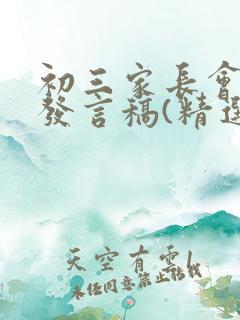 初三家長會
發言稿(精選
天空有雲/
未經同意禁止轉載